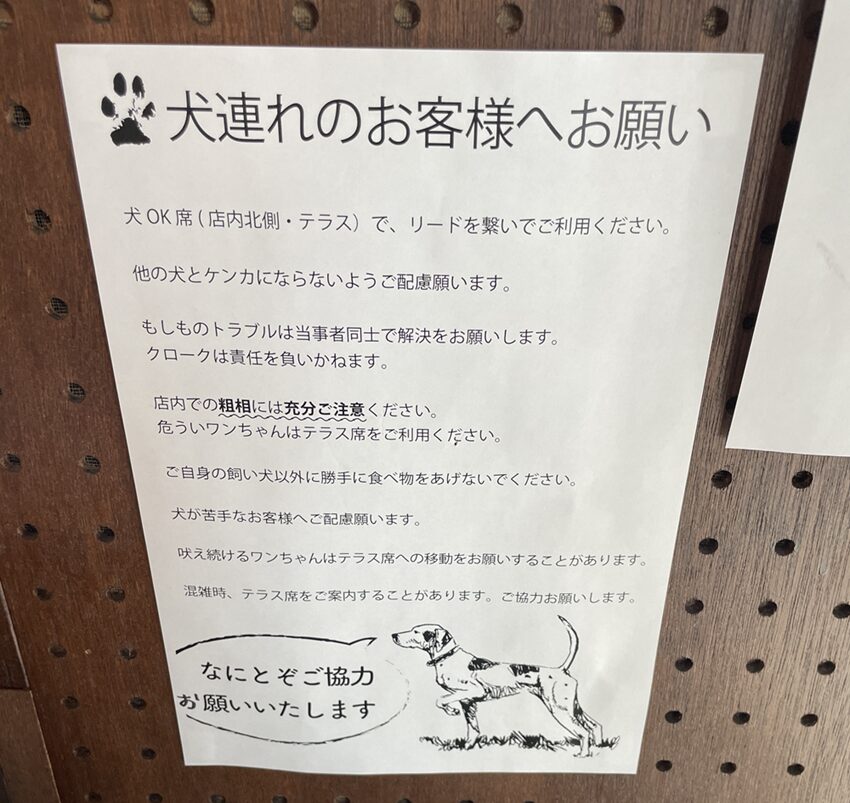 犬連れのお客様へお願い
犬OK席(店内北側・テラス）で、リードを繋いでご利用ください。
他の犬とケンカにならないようご配慮願います。
もしものトラブルは当事者同士で解決をお願いします。
クロークは責任を負いかねます。
店内での粗相には充分ご注意ください。
危ういワンちゃんはテラス席をご利用ください。
ご自身の飼い犬以外に勝手に食べ物をあげないでください。
犬が苦手なお客様へご配慮願います。
吠え続けるワンちゃんはテラス席への移動をお願いすることがあります。
混雑時、テラス席をご案内することがあります。ご協力お願いします。
なにとぞご協力
お願いいたします